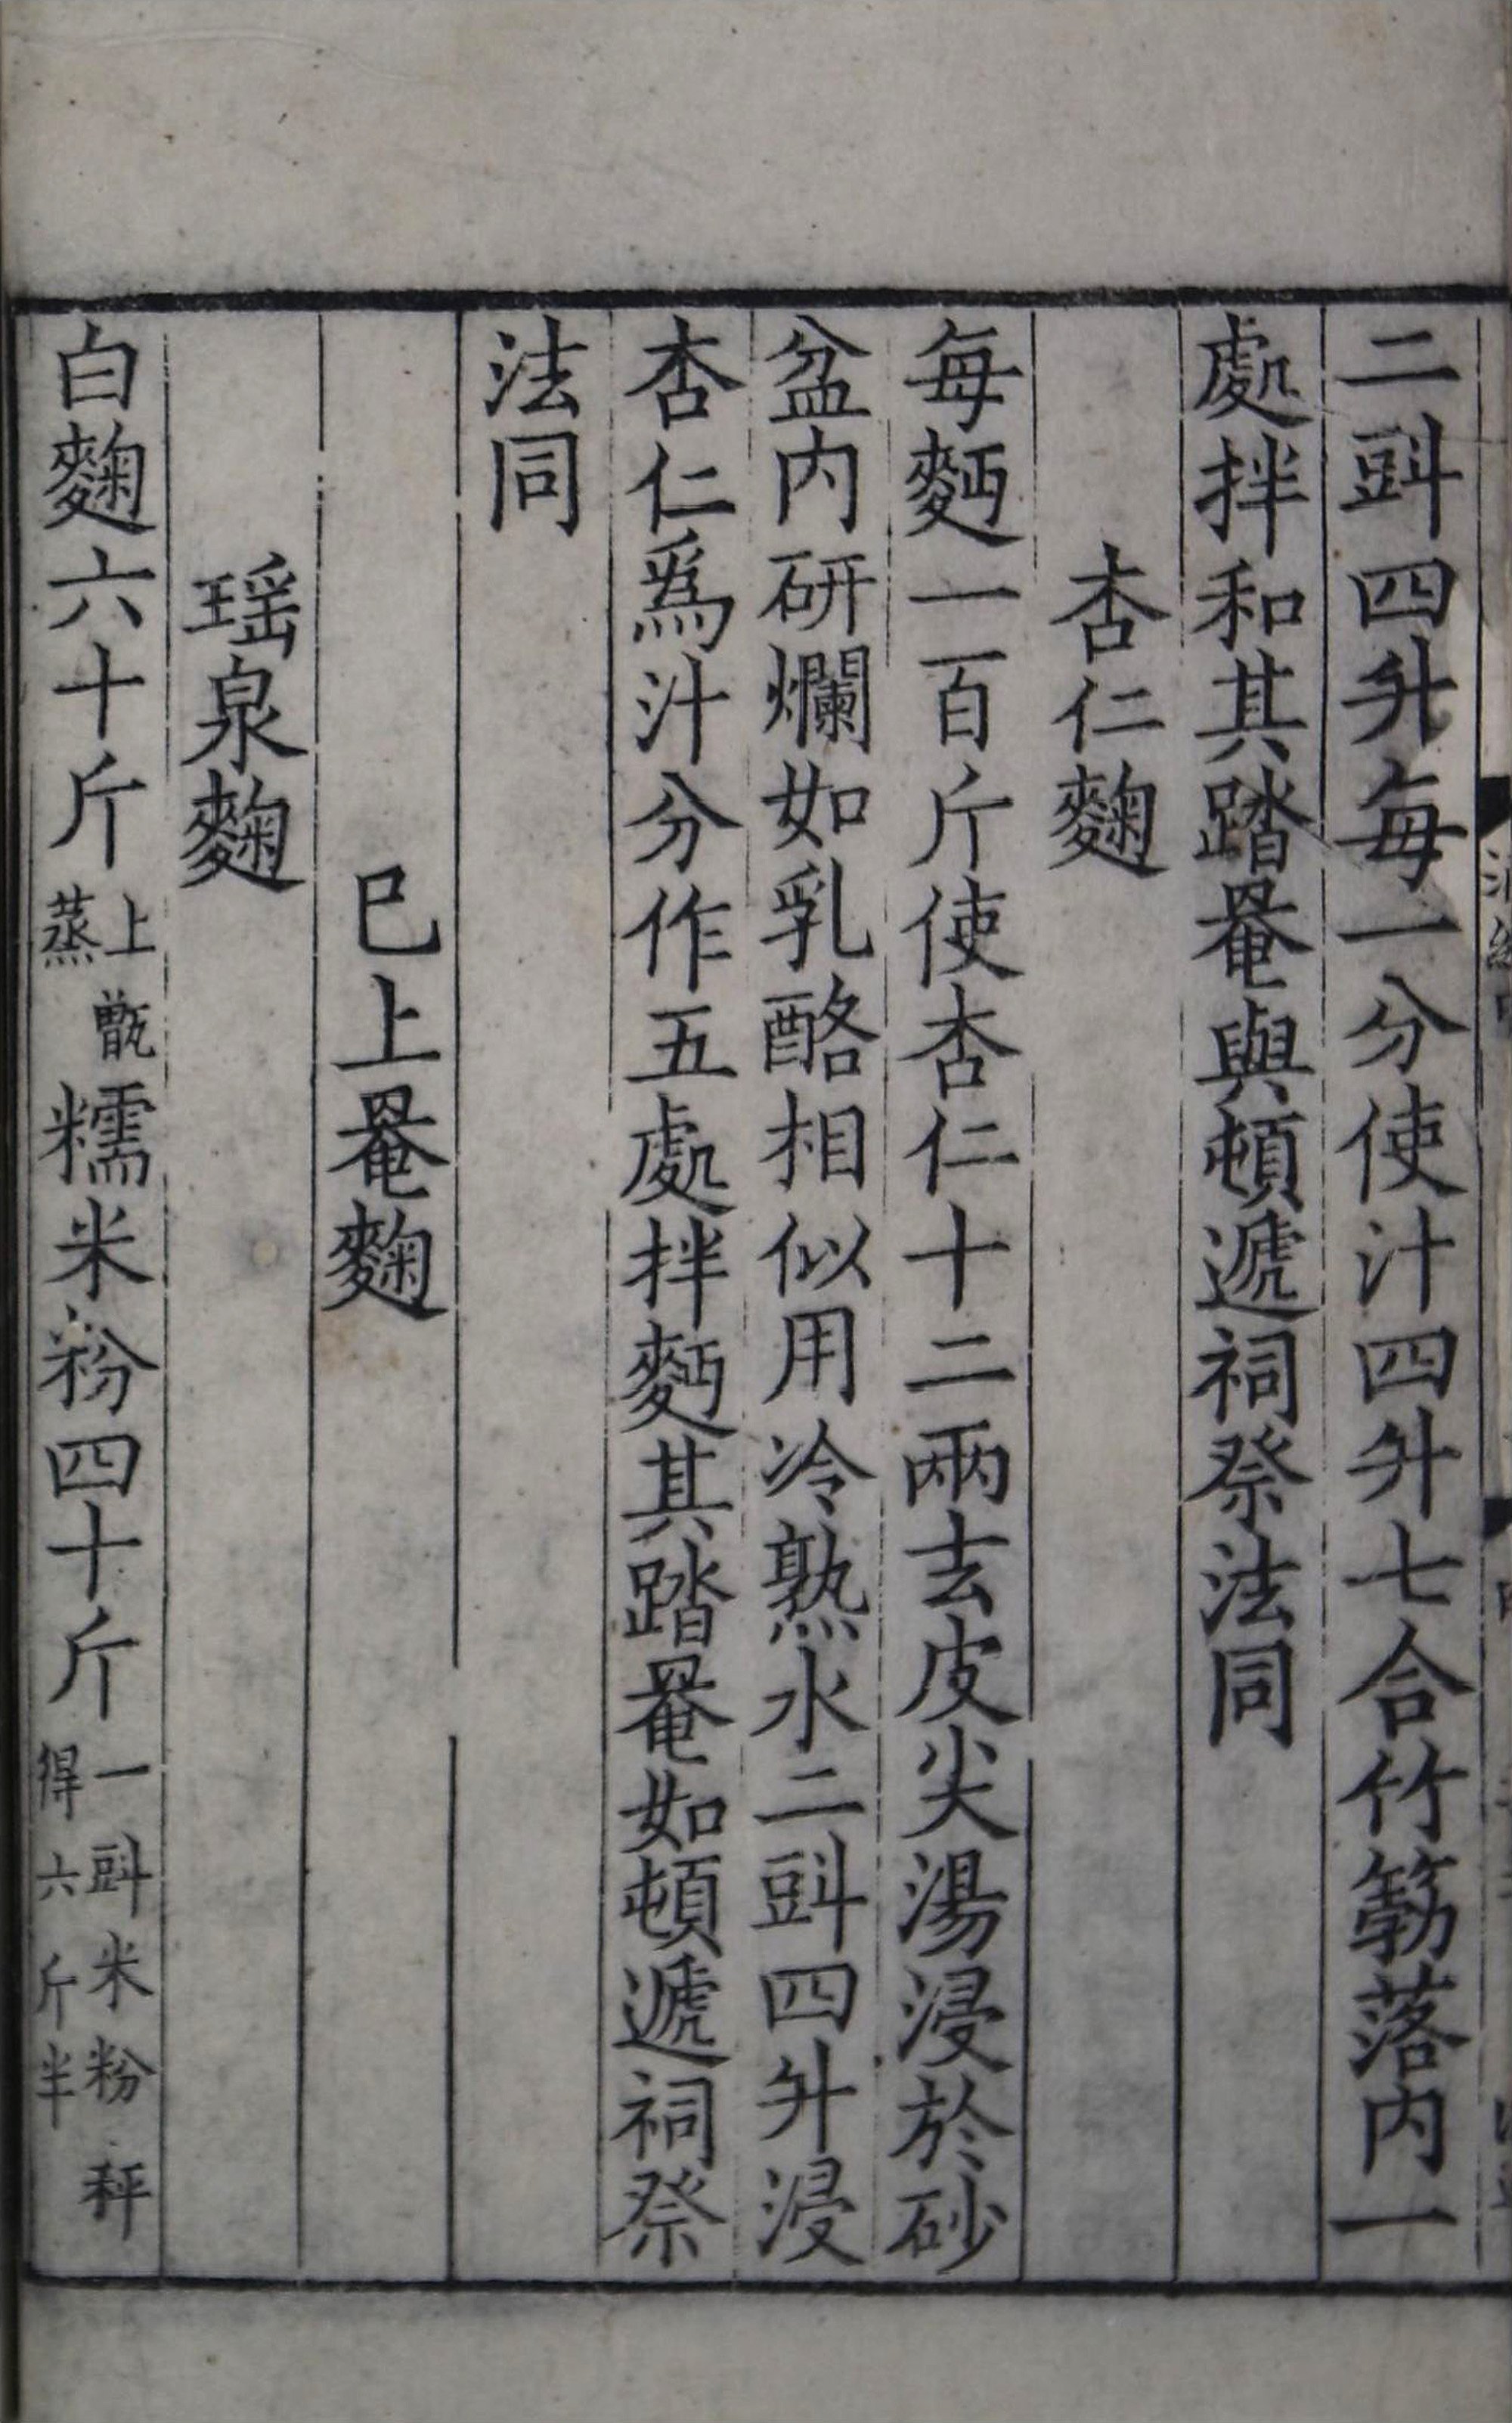 二㪷四升每一分使汁四升七合竹䈥落内一
處拌和其踏罨與頓遞祠祭法同
杏仁麴
每麪一百斤使杏仁十二兩去皮尖湯浸於砂
盆内研爛如乳酪相似用冷熟水二㪷四升浸
杏仁爲汁分作五處拌麪其踏罨如頓遞祠祭
法同
巳上罨麴
瑶泉麴
白麴六十斤上甑蒸糯米粉四十斤一㪷米粉秤得六斤半